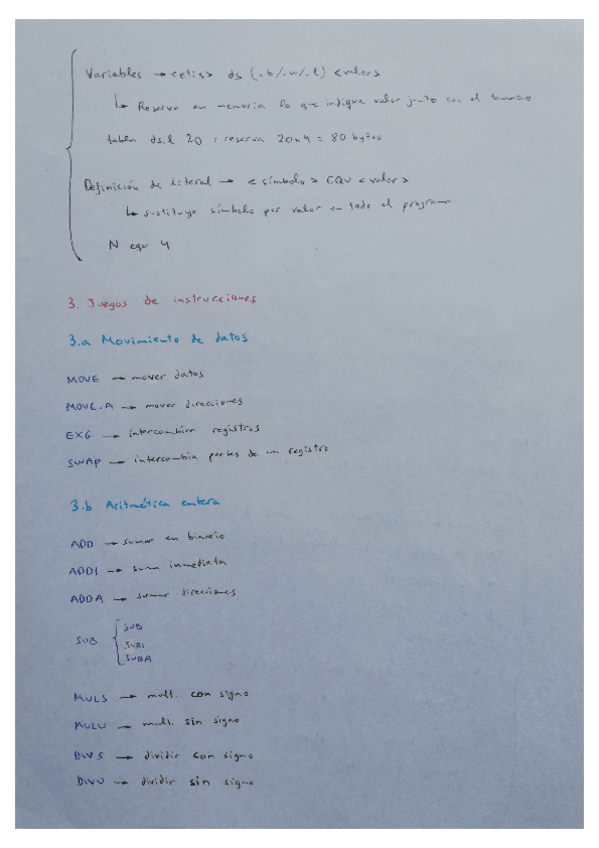 Variables → <etiq> ds (.b/.w/.l) <valor>
↳ Reserva en memoria lo que indique valor junto con el tamaño
tabla ds.l 20 : reserva 20x4 = 80 bytes
Definición de literal → <símbolo> EQU <valor>
↳ sustituye símbolo por valor en todo el programa
N equ 4
3. Juegos de instrucciones
3.a Movimiento de datos
MOVE → mover datos
MOVE.A → mover direcciones
EXG → intercambiar registros
SWAP → intercambia partes de un registro
3.b Aritmética entera
ADD → sumar en binario
ADDI → suma inmediata
ADDA → sumar direcciones
SUB { SUB
SUBI
SUBA
MULS → mult. con signo
MULU → mult. sin signo
DIVS → dividir con signo
DIVU → dividir sin signo